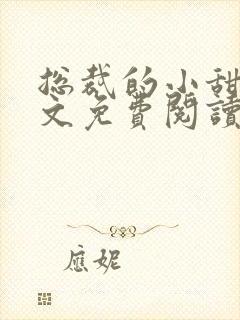 总裁的小甜
文免費閱讀
應妮